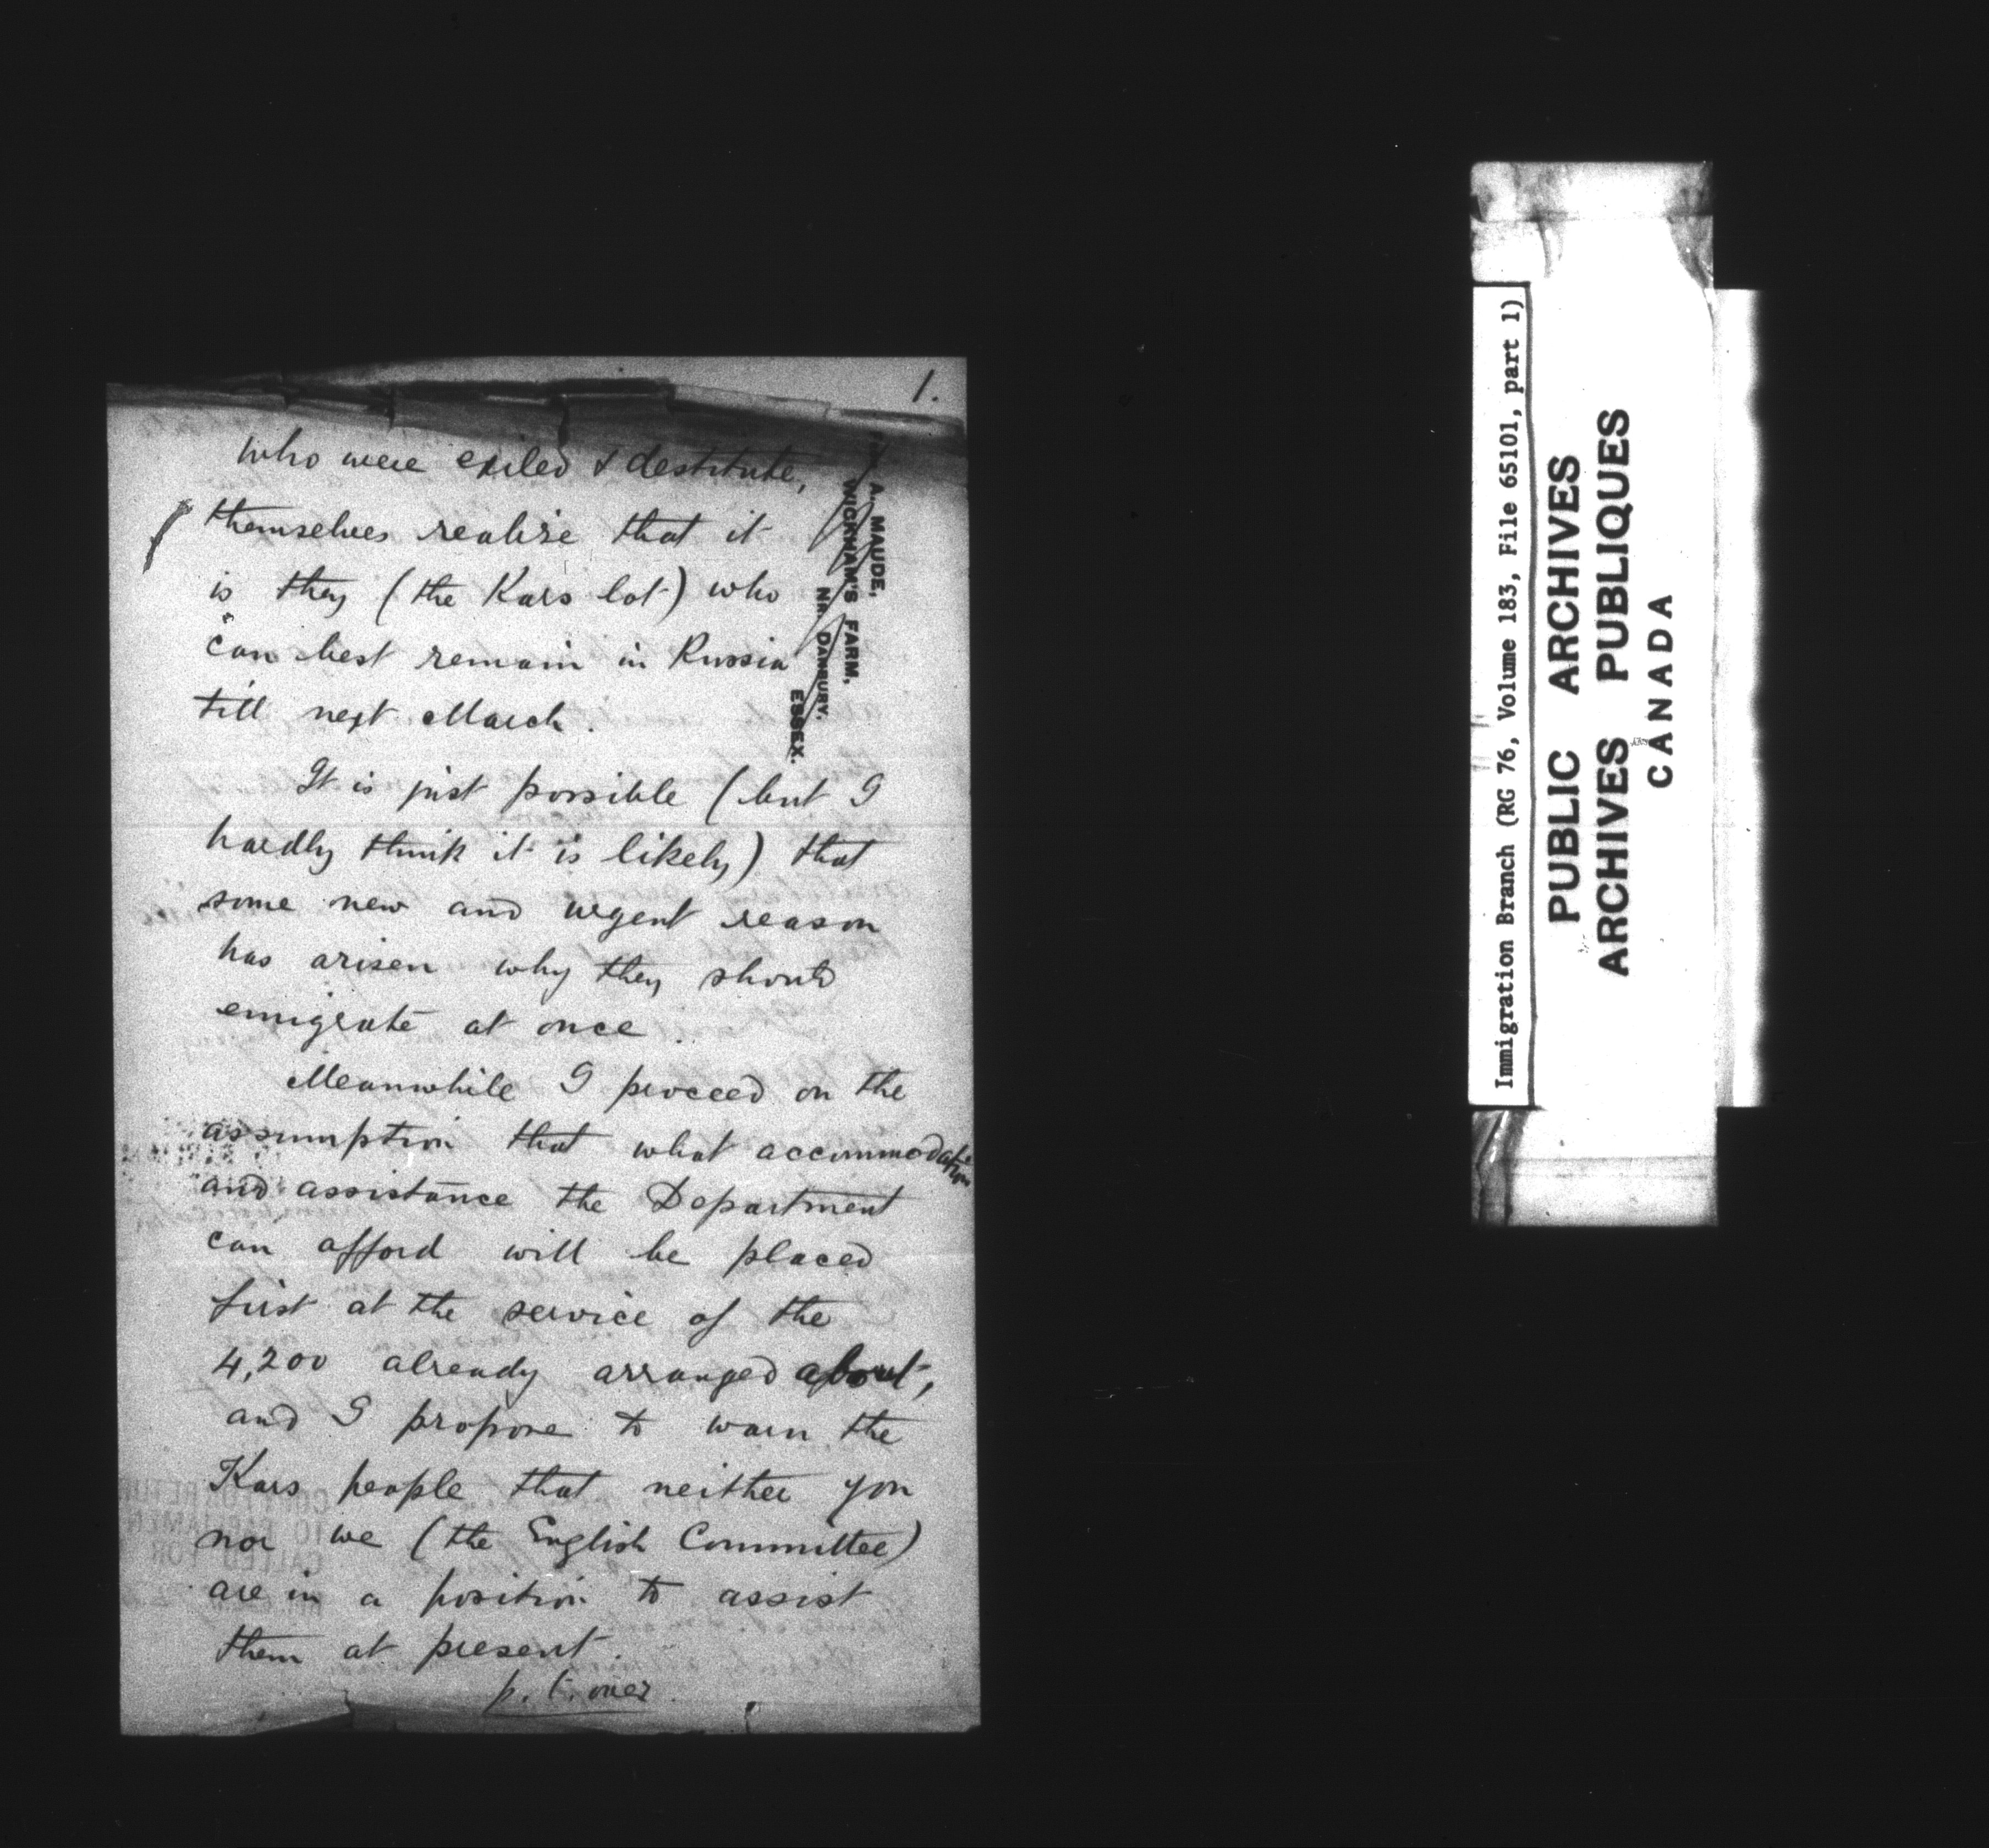 1.
who were exiled & destitute,
themselves realise that it
is they (the Kars lot) who
can best remain in Russia
till next March.
It is just possible (but I
hardly think it is likely) that
some new and urgent reason
has arisen why they should
emigrate at once.
Meanwhile I proceed on the
assumption that what accommodation
and assistance the Department
can afford will be placed
first at the service of the
4,200 already arranged about,
and I propose to warn the
Kars people that neither you
nor we (the English Committee)
are in a position to assist
them at present.
p. t. over
A. MAUDE,
WICKHAM'S FARM,
NR. DANBURY,
ESSEX.
COPY FOR RETUR
TO PARLIAMEN
CALLED FOR
Immigration Branch (RG 76, Volume 183, File 65101, part 1)
PUBLIC ARCHIVES
ARCHIVES PUBLIQUES
CANADA